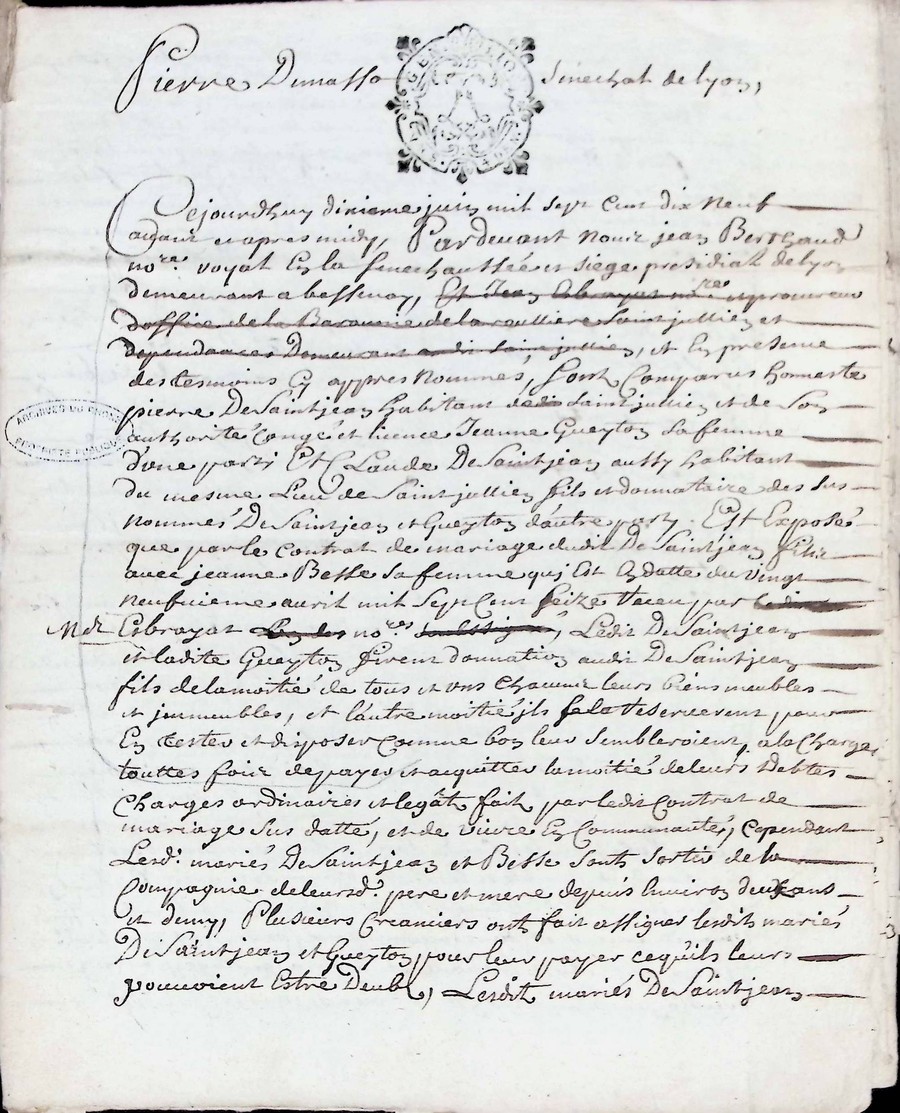 Pierre Dumasso Senechal de lyon,
GEN. D LION
Cejourdhuy dixieme juin mil sept cens dix neuf
avant et apres midy, Pardevant nous jean Berthaud
no.re royal En la senechaussée et siege presidial de lyon
demeurant a bessenay, Et Jean Esbrayat no.re et procureur
d'office de la Baronnie de la roulliere Saint jullien et
dependances Demeurant audit Saint jullien, et En presence
des tesmoins Cy appres nommes, sont Comparus honneste
pierre De Saint jean habitant de saint jullien et de Son
authorité congé et licence Jeanne Gueyton sa femme
ARCHIVES DU RHONE
d'une parti Et Claude De Saint jean aussy habitant
du mesme Lieu de Saint jullien fils et donnataire des sus
nommés De Saint jean et Gueyton d'autre party. Est Exposé
que par le contrat de mariage dudit De Saint jean fils
avec jeanne Besse sa femme qui Est En datte du vingt
neufvieme avril mil sept cens seize receu par ledit
Me Esbrayat no.res soussigné, Ledit De Saint jean
et ladite Gueyton firent donnation audit De Saint jean
fils de la moitié de tous et uns chacuns leurs biens meubles
et jmmeubles, et l'autre moitié jls se la reserverent pour
En tester et disposer comme bon leur sembleroient, a la charge
touttes fois de payer et acquitter la moitié de leurs debtes
charges ordinaires et legat fait par ledit Contrat de
mariage sus datté, et de vivre En Communauté, cependant
Lesd. mariés De Saint jean et Besse sont sortis de la
Compagnie de leursd. pere et mere depuis Environ deux ans
et demy, Plusieurs creanciers ont fait assigner lesdits mariés
De Saint jean et Gueyton pour leur payer ce qu'ils leurs
pouvoient Estre Deub, Lesdit mariés De Saint jean